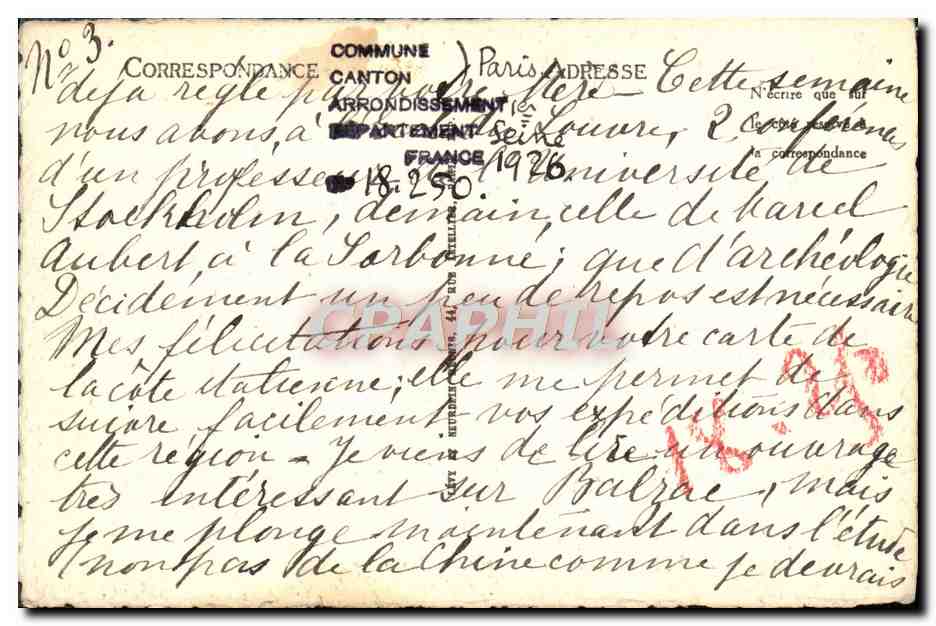 No 3.
CORRESPONDANCE
ADRESSE
N'écrire que sur
la correspondance
COMMUNE Paris
CANTON
ARRONDISSEMENT 1er
DÉPARTEMENT Seine
FRANCE 1926
18 250.
déjà réglé par votre frère - Cette semaine
nous avons, à Louvre, 2 conférences
d'un professeur de l'Université de
Stockholm, demain, celle de Marcel
Aubert, à la Sorbonne; que d'archéologie
Décidément un peu de repos est nécessaire
Mes félicitations pour votre carte de
la côte italienne; elle me permet de
suivre facilement vos expéditions dans
cette région - Je viens de lire un ouvrage
très intéressant sur Balzac, mais
je me plonge maintenant dans l'étude
(non pas de la Chine comme je devrais
LÉVY ET NEURDEIN RÉUNIS, 44, RUE LETELLIER, PARIS
CPAPHIL
18.25